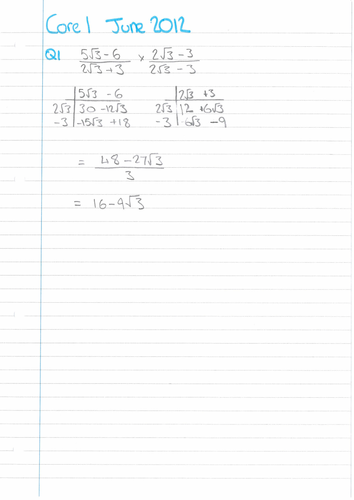 Core 1 June 2012
Q1 5√3 - 6 / 2√3 + 3 × 2√3 - 3 / 2√3 - 3
5√3 - 6
2√3 30 -12√3
-3 -15√3 +18
2√3 +3
2√3 12 +6√3
-3 6√3 -9
= 48 - 27√3 / 3
= 16 - 9√3